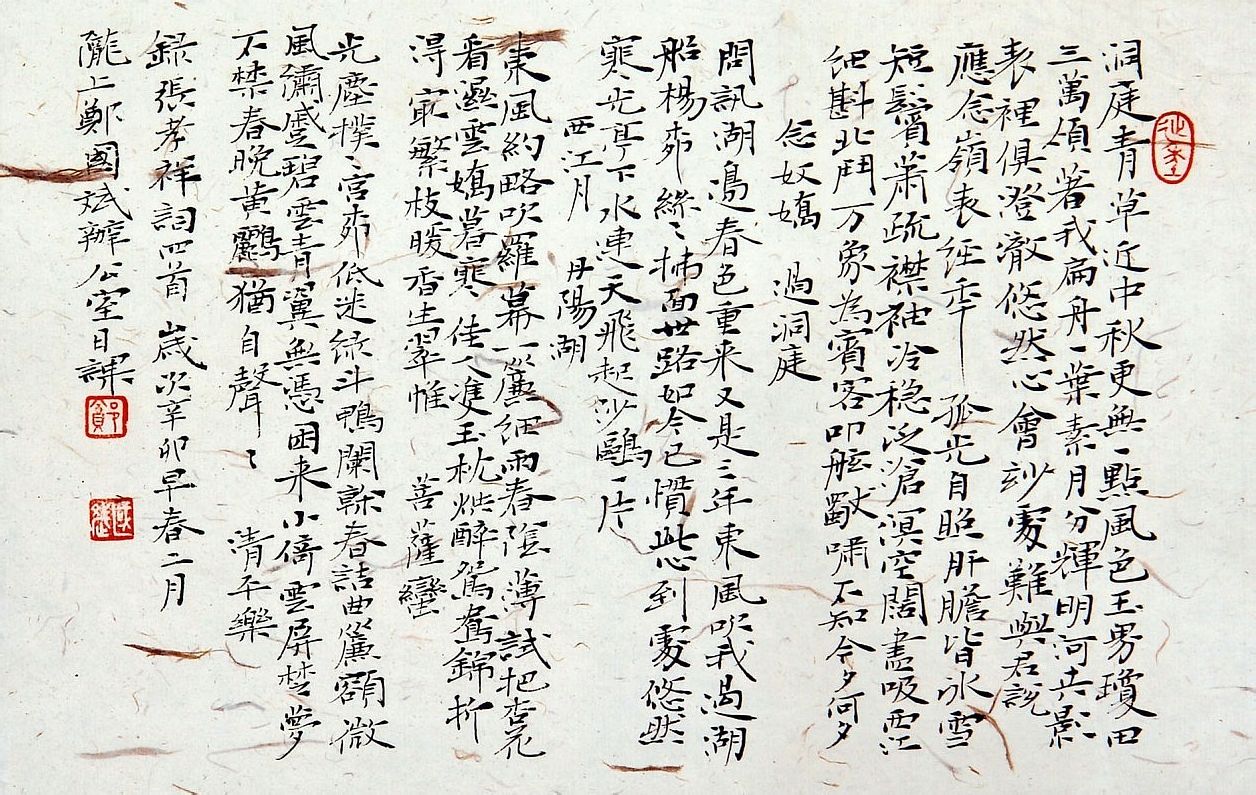 洞庭青草近中秋更無一點風色玉界瓊田
三萬頃著我扁舟一葉素月分輝明河共影
表裡俱澄澈悠然心會玅處難與君説
應念嶺表經年孤光自照肝膽皆冰雪
短鬢蕭疏襟袖冷穏泛滄溟空闊盡吸西江
細斟北鬥万象為賓客叩舷獨嘯不知今夕何夕
念奴嬌 過洞庭
問訊湖邊春色重来又是三年東風吹我過湖
船楊栁絲〻拂面世路如今已慣此心到處悠然
寒光亭下水連天飛起沙鷗一片
西江月 丹陽湖
東風約略吹羅幕一簾細雨春陰薄試把杏花
看濕雲嬌暮寒佳人雙玉枕烘醉鴛鴦錦折
得最繁枝暖香生翠帷 菩薩蠻
光塵撲〻宮栁低迷緑斗鴨闌榦春詰曲簾額微
風繡蹙碧雲青翼無憑困来小倚雲屏楚夢
不禁春晚黄鸝猶自聲〻 清平樂
録張孝祥詞四首 歲次辛卯早春二月
隴上鄭國斌辦公室日課